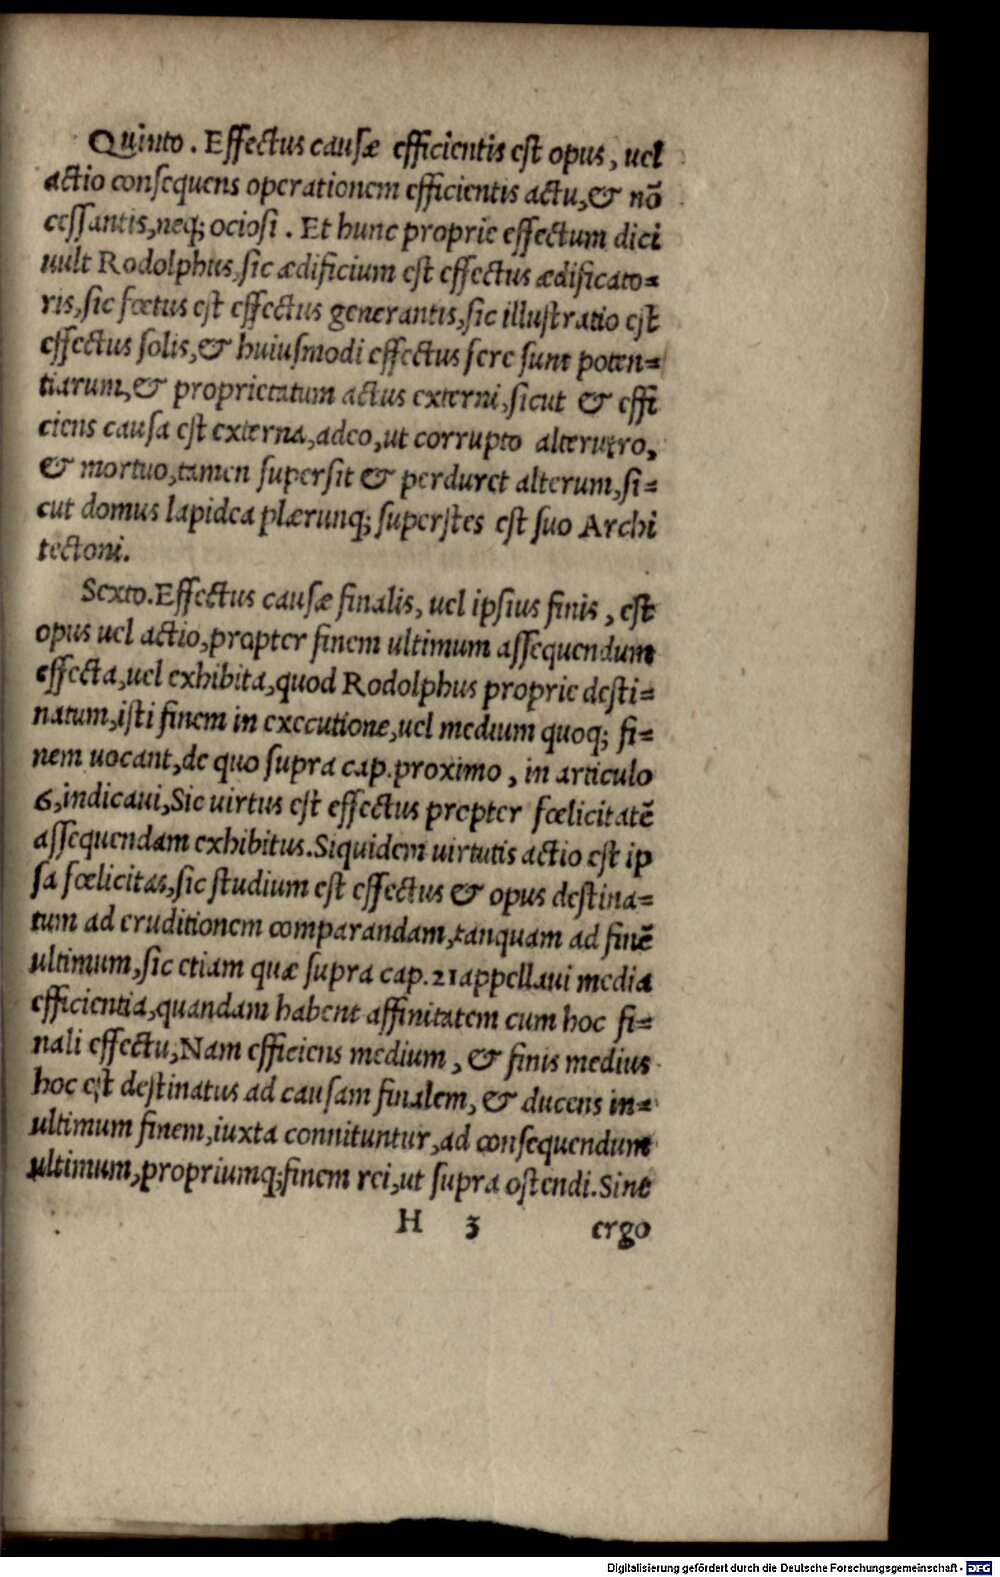 Quinto. Effectus causæ efficientis est opus, uel
actio consequens operationem efficientis actu, & nõ
cessantis, neq; ociosi. Et hunc proprie effectum dici
uult Rodolphus, sic ædificium est effectus ædificato=
ris, sic fœtus est effectus generantis, sic illustratio est
effectus solis, & huiusmodi effectus fere sunt poten=
tiarum, & proprietatum actus externi, sicut & effi
ciens causa est externa, adeo, ut corrupto alterutro,
& mortuo, tamen supersit & perduret alterum, si=
cut domus lapidea plærunq; superstes est suo Archi
tectoni.
Sexto. Effectus causæ finalis, uel ipsius finis, est
opus uel actio, propter finem ultimum assequendum
effecta, uel exhibita, quod Rodolphus proprie desti=
natum, isti finem in executione, uel medium quoq; fi=
nem uocant, de quo supra cap. proximo, in articulo
6, indicaui, Sic uirtus est effectus propter fœlicitatẽ
assequendam exhibitus. Siquidem uirtutis actio est ip
sa fœlicitas, sic studium est effectus & opus destina=
tum ad eruditionem comparandam, tanquam ad finẽ
ultimum, sic etiam quæ supra cap. 21 appellaui media
efficientia, quandam habent affinitatem cum hoc fi=
nali effectu, Nam efficiens medium, & finis medius
hoc est destinatus ad causam finalem, & ducens in=
ultimum finem, iuxta connituntur, ad consequendum
ultimum, propriumq; finem rei, ut supra ostendi. Sint
H 3 ergo
Digitalisierung gefördert durch die Deutsche Forschungsgemeinschaft - DFG